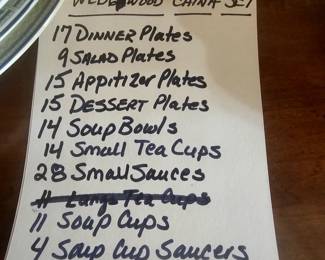 WEDGWOOD CHINA SET
17 DINNER Plates
9 SALAD Plates
15 Appitizor Plates
15 DESSERT Plates
14 Soup Bowls
14 Small Tea Cups
28 Small Sauces
11 Large Tea Cups
11 Soup Cups
4 Soup Cup Saucers